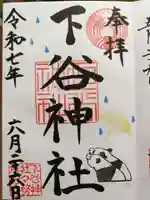 奉拝
下谷神社
令和七年
六月二十六日